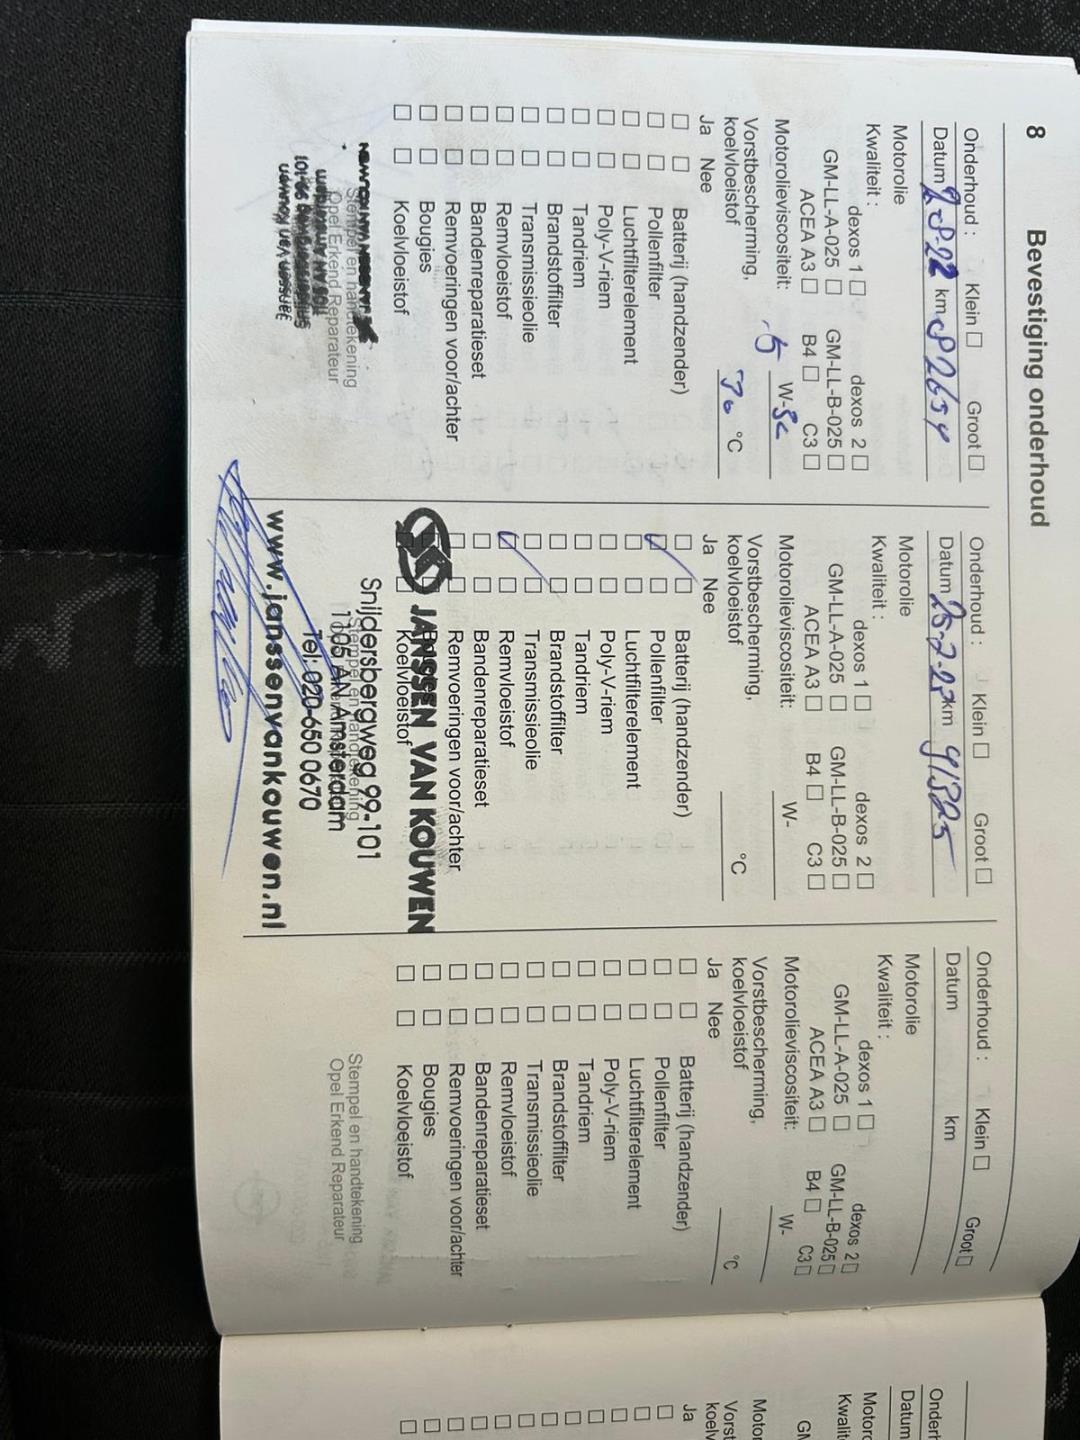 8 Bevestiging onderhoud
Onderhoud : Klein □ Groot □
Datum 2-8-22 km 82654
Motorolie
Kwaliteit : dexos 1 □ dexos 2 □
GM-LL-A-025 □ GM-LL-B-025 □
ACEA A3 □ B4 □ C3 □
Motorolieviscositeit: 5 W-30
Vorstbescherming,
koelvloeistof °C
Ja Nee
□ □ Batterij (handzender)
□ □ Pollenfilter
□ □ Luchtfilterelement
□ □ Poly-V-riem
□ □ Tandriem
□ □ Brandstoffilter
□ □ Transmissieolie
□ □ Remvloeistof
□ □ Bandenreparatieset
□ □ Remvoeringen voor/achter
□ □ Bougies
□ □ Koelvloeistof
Stempel en handtekening
Opel Erkend Reparateur
Onderhoud : Klein □ Groot □
Datum 25-7-23 km 91325
Motorolie
Kwaliteit : dexos 1 □ dexos 2 □
GM-LL-A-025 □ GM-LL-B-025 □
ACEA A3 □ B4 □ C3 □
Motorolieviscositeit: W-
Vorstbescherming,
koelvloeistof °C
Ja Nee
□ □ Batterij (handzender)
☑ □ Pollenfilter
□ □ Luchtfilterelement
□ □ Poly-V-riem
□ □ Tandriem
□ □ Brandstoffilter
□ □ Transmissieolie
☑ □ Remvloeistof
□ □ Bandenreparatieset
□ □ Remvoeringen voor/achter
□ □ Bougies
□ □ Koelvloeistof
JANSSEN VAN KOUWEN
Snijdersbergweg 99-101
1105 AN Amsterdam
Tel: 020-650 0670
www.janssenvankouwen.nl
Stempel en handtekening
Onderhoud : Klein □ Groot □
Datum km
Motorolie
Kwaliteit : dexos 1 □ dexos 2 □
GM-LL-A-025 □ GM-LL-B-025 □
ACEA A3 □ B4 □ C3 □
Motorolieviscositeit: W-
Vorstbescherming,
koelvloeistof °C
Ja Nee
□ □ Batterij (handzender)
□ □ Pollenfilter
□ □ Luchtfilterelement
□ □ Poly-V-riem
□ □ Tandriem
□ □ Brandstoffilter
□ □ Transmissieolie
□ □ Remvloeistof
□ □ Bandenreparatieset
□ □ Remvoeringen voor/achter
□ □ Bougies
□ □ Koelvloeistof
Stempel en handtekening
Opel Erkend Reparateur
Onderh
Datum
Motoro
Kwalit
GM
Motor
Vorst
koelv
Ja